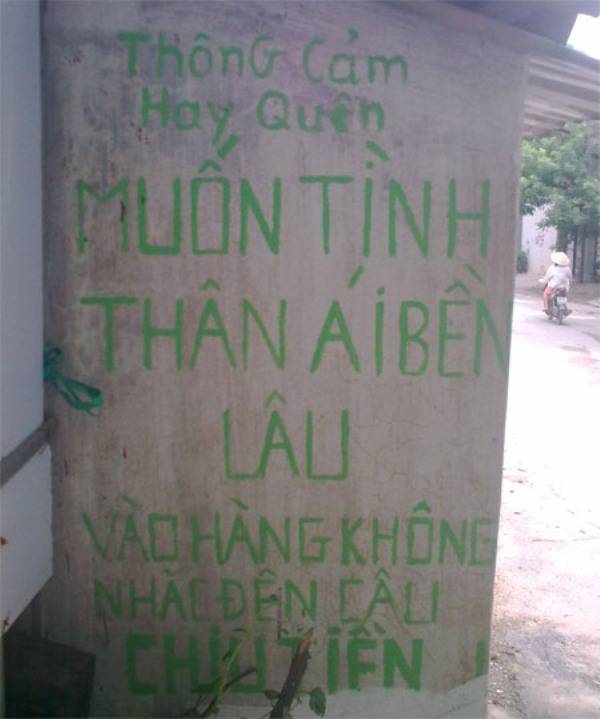 Thông Cảm
Hay Quên
MUỐN TÌNH
THÂN ÁI BỀN
LÂU
VÀO HÀNG KHÔNG
NHẮC ĐẾN CÂU
CHỊU TIỀN !